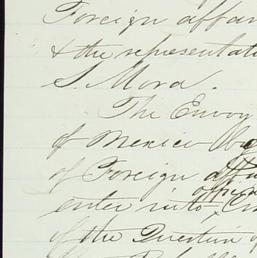 Foreign affair
& the representati
S. Mora.
The Envoy
of Mexico
of Foreign
enter into
of the Question of